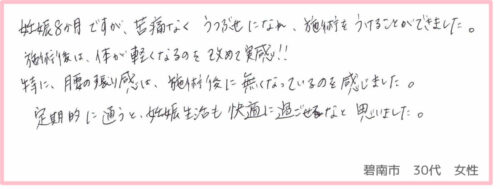 妊娠8ヶ月ですが、苦痛なくうつぶせになれ、施術をうけることができました。
施術後は、体が軽くなるのを改めて実感!!
特に、腰の張り感は、施術後に無くなっているのを感じました。
定期的に通うと、妊娠生活も快適に過ごせるなと思いました。
碧南市 30代 女性